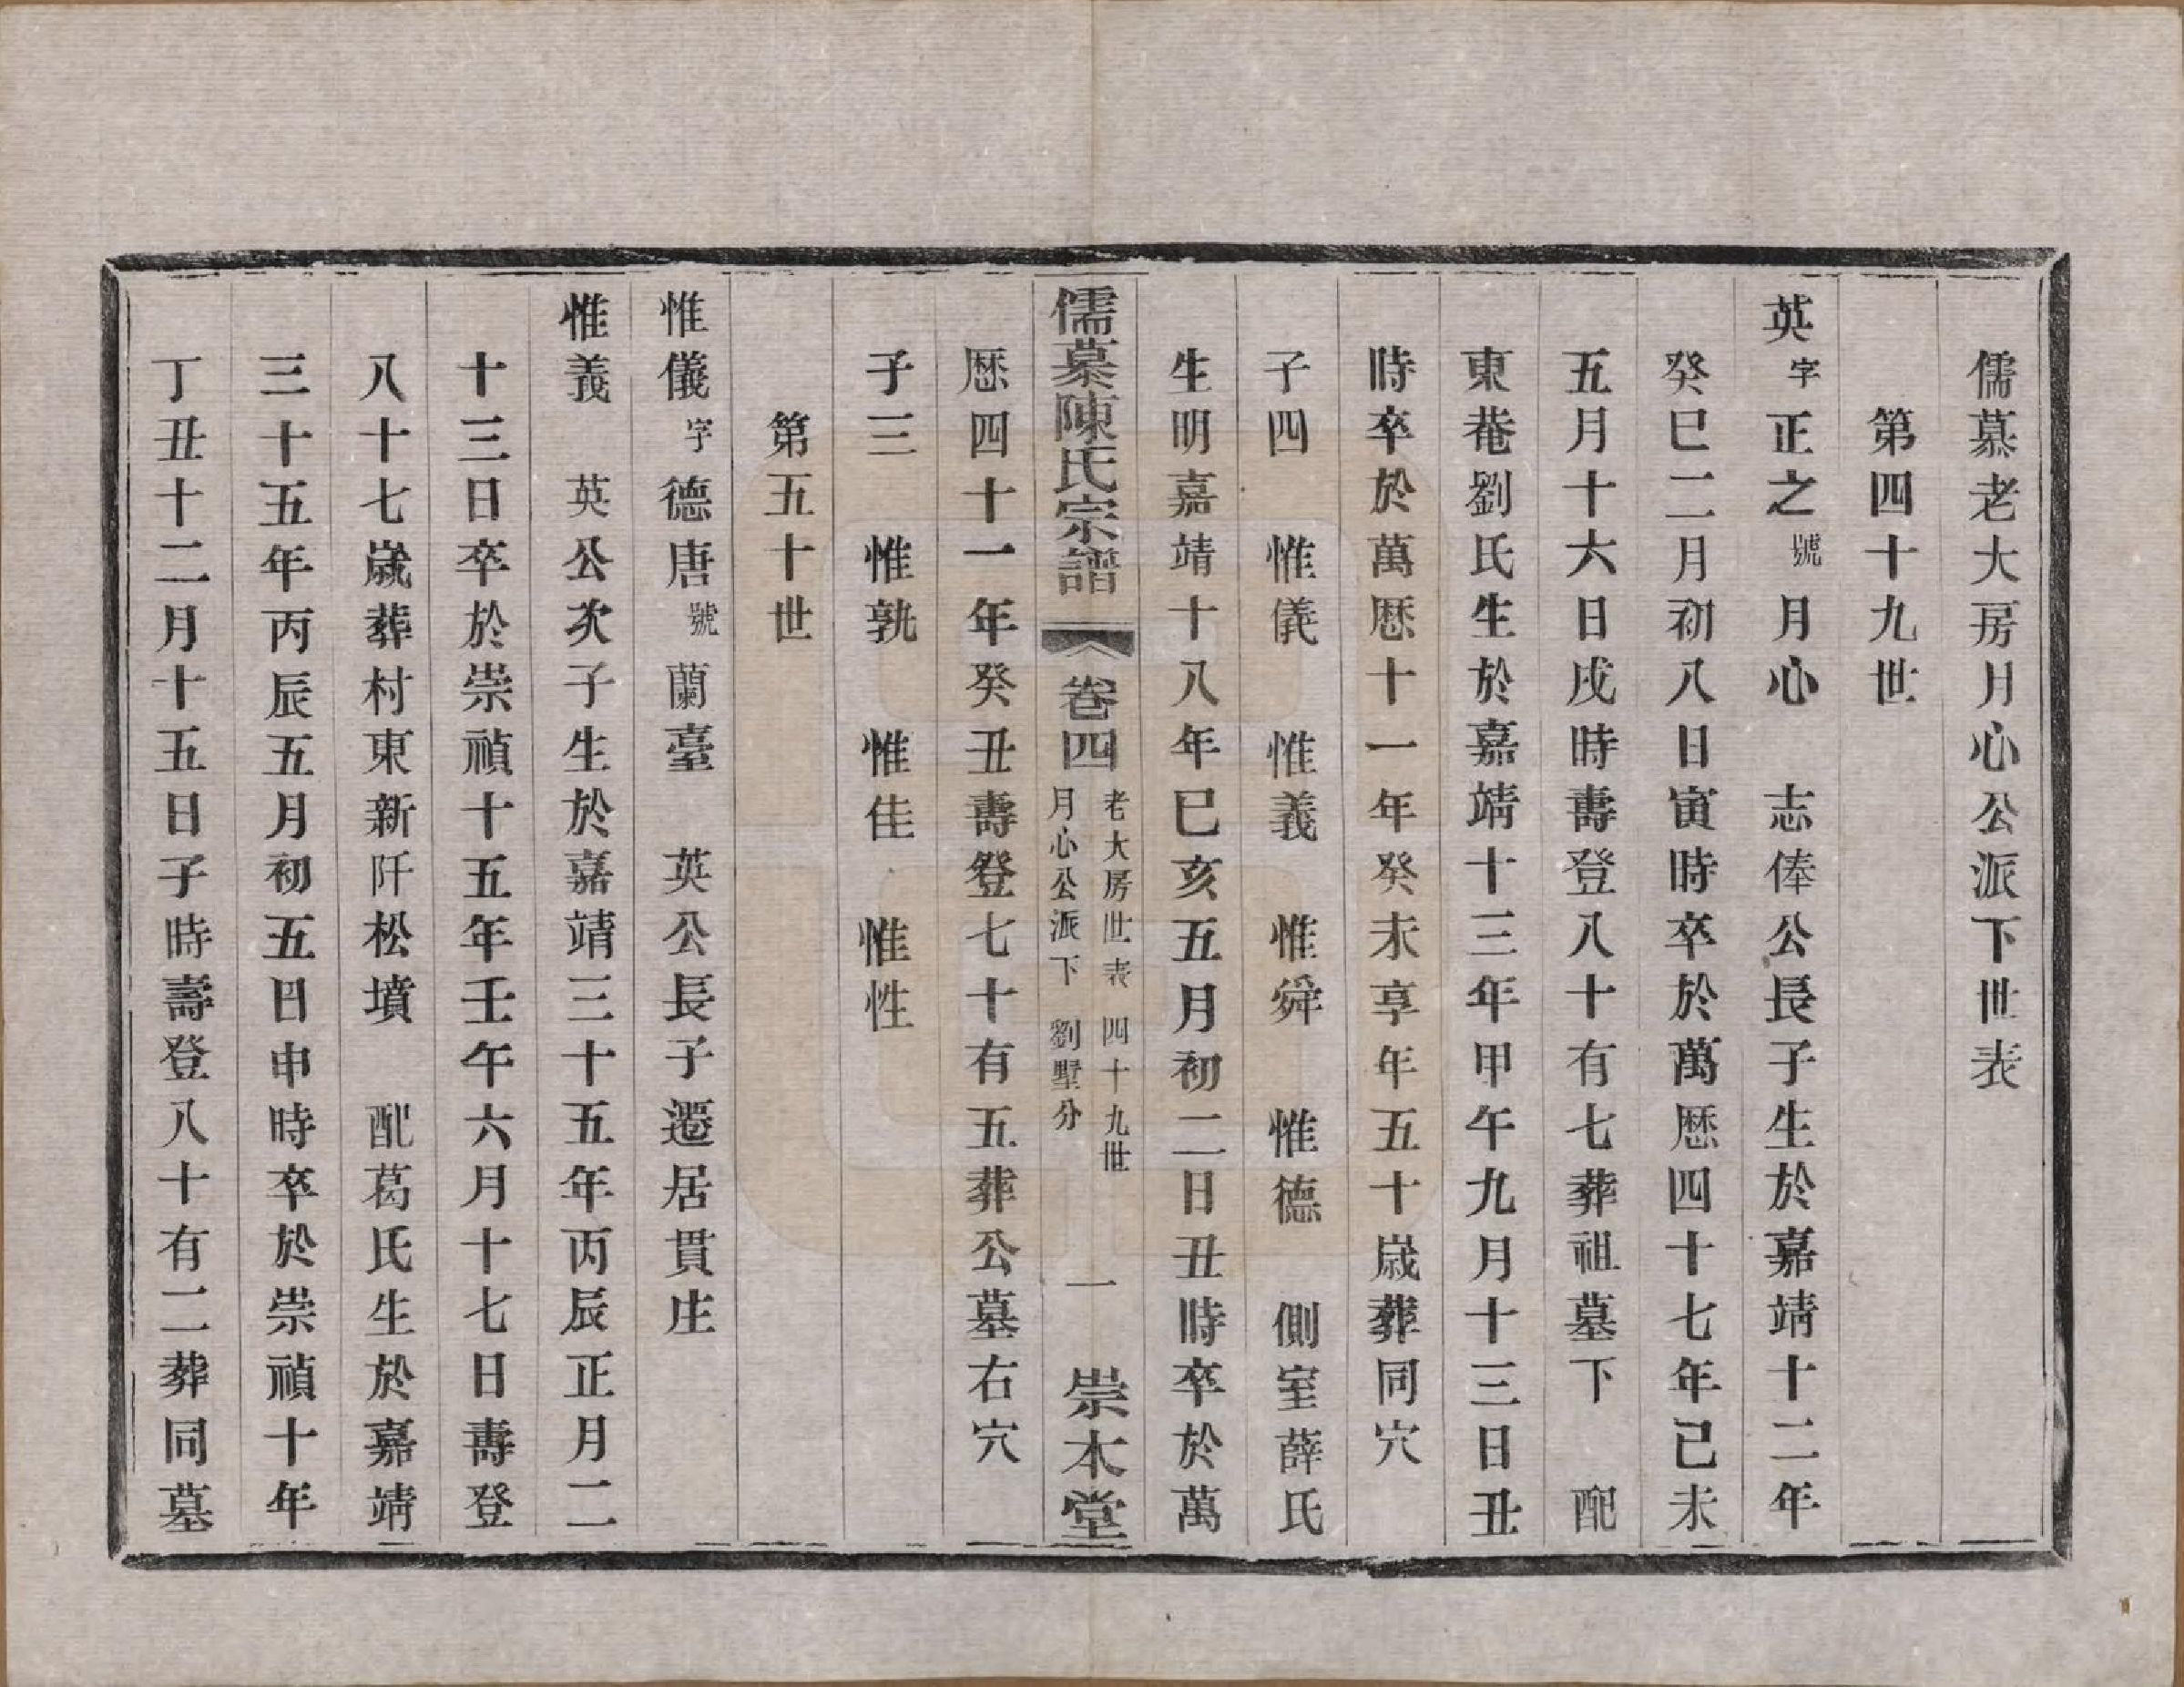 儒慕老大房月心公派下世表
第四十九世
英字正之號月心　志俸公長子生於嘉靖十二年
癸巳二月初八日寅時卒於萬厯四十七年己未
五月十六日戌時壽登八十有七葬祖墓下　配
東菴劉氏生於嘉靖十三年甲午九月十三日丑
時卒於萬厯十一年癸未享年五十歲葬同穴
子四　惟儀　惟義　惟舜　惟德　側室薛氏
生明嘉靖十八年巳亥五月初二日丑時卒於萬
儒慕陳氏宗譜　卷四　老大房世表　四十九世
月心公派下　劉墅分　一　崇本堂
厯四十一年癸丑壽登七十有五葬公墓右穴
子三　惟孰　惟佳　惟性
第五十世
惟儀字德唐號蘭臺　英公長子遷居貫庄
惟義　英公次子生於嘉靖三十五年丙辰正月二
十三日卒於崇禎十五年壬午六月十七日壽登
八十七歲葬村東新阡松墳　配葛氏生於嘉靖
三十五年丙辰五月初五日申時卒於崇禎十年
丁丑十二月十五日子時壽登八十有二葬同墓